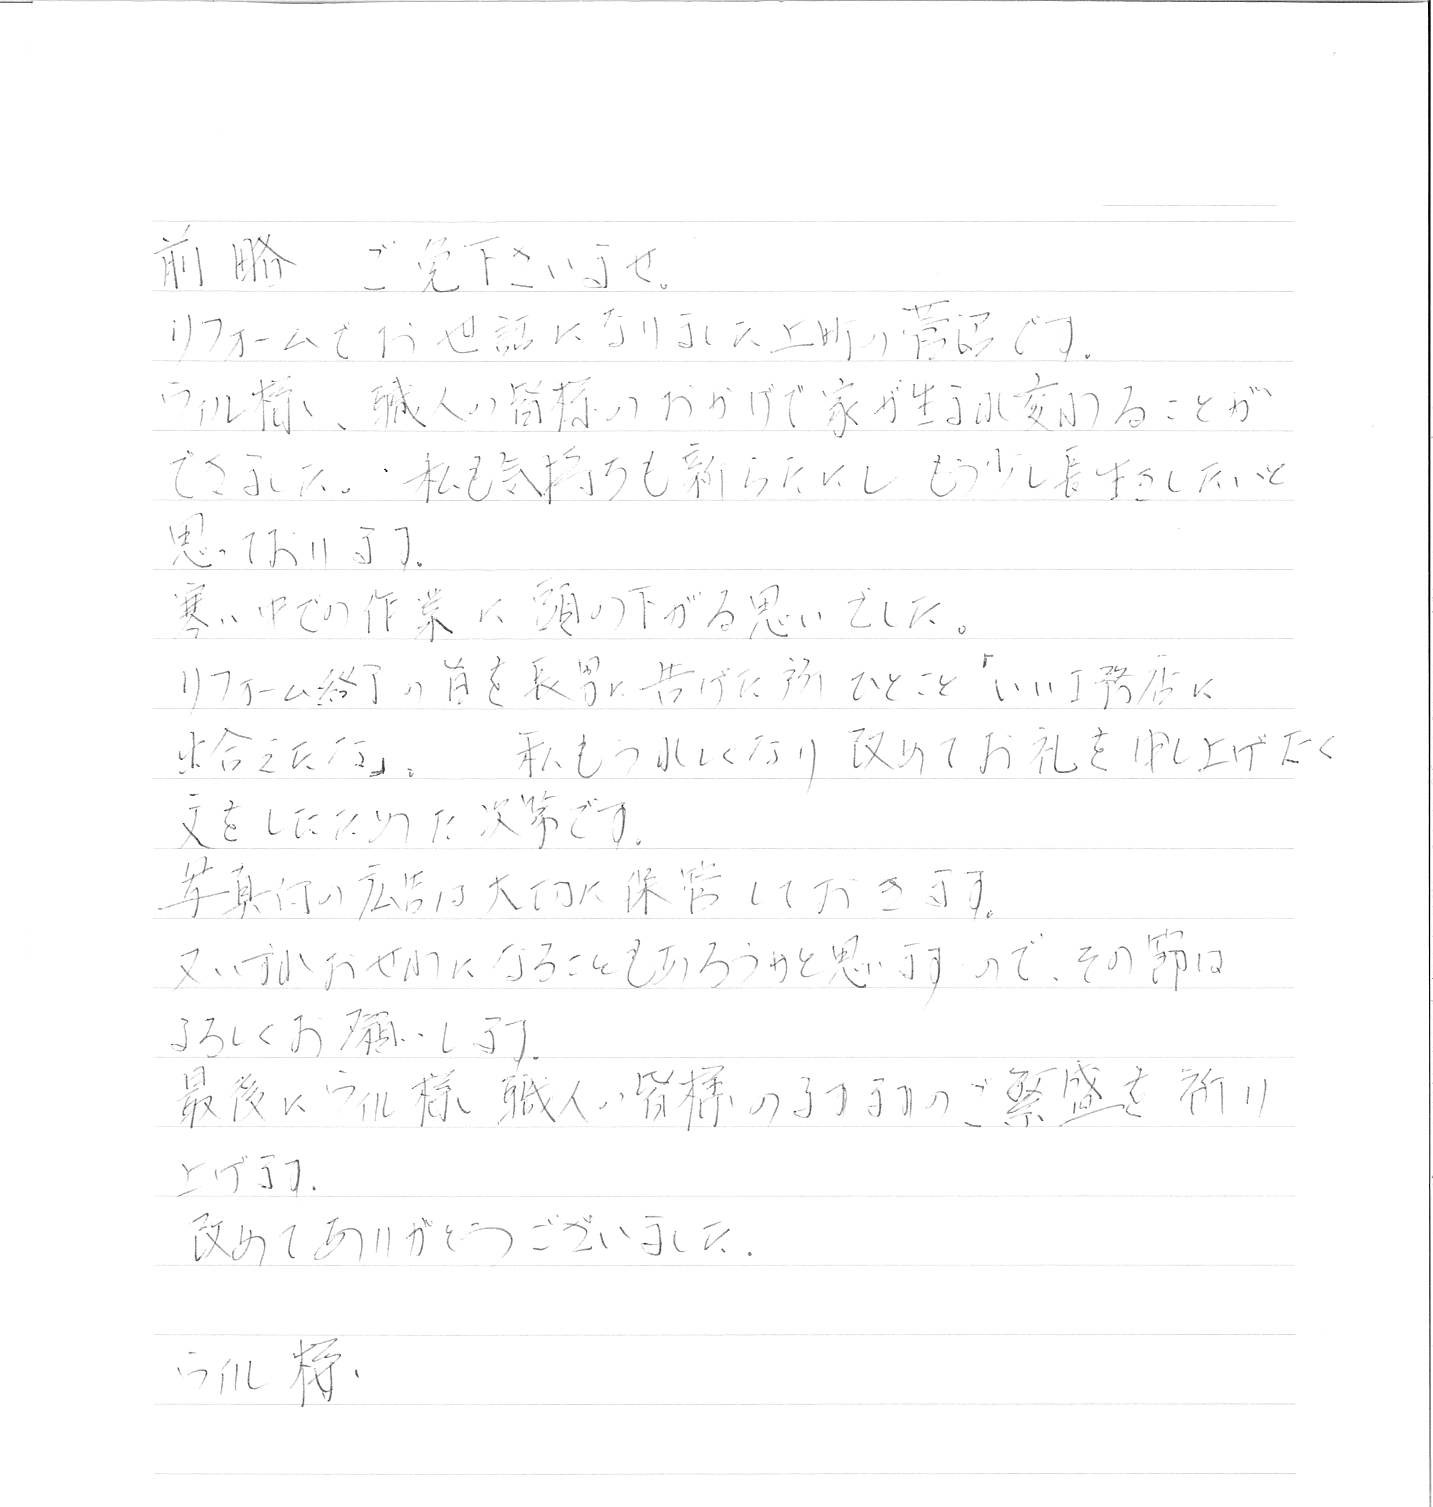 前略　ご免下さいませ。
リフォームでお世話になりました上町の菅沼です。
ウィル様、職人の皆様のおかげで家が生まれ変わることが
できました。私も気持ちも新らたにし もう少し長生きしたいと
思っております。
寒い中での作業に頭の下がる思いでした。
リフォーム終了の旨を長男に告げた所 ひとこと「いい工務店に
出合えたな」。　私もうれしくなり 改めてお礼を申し上げたく
文をしたためた次第です。
写真付の広告は大切に保管しておきます。
又いずれおせわになることもあろうかと思いますので、その節は
よろしくお願いします。
最後にウィル様 職人の皆様のますますのご繁盛を祈り
上げます。
改めてありがとうございました。
ウィル様